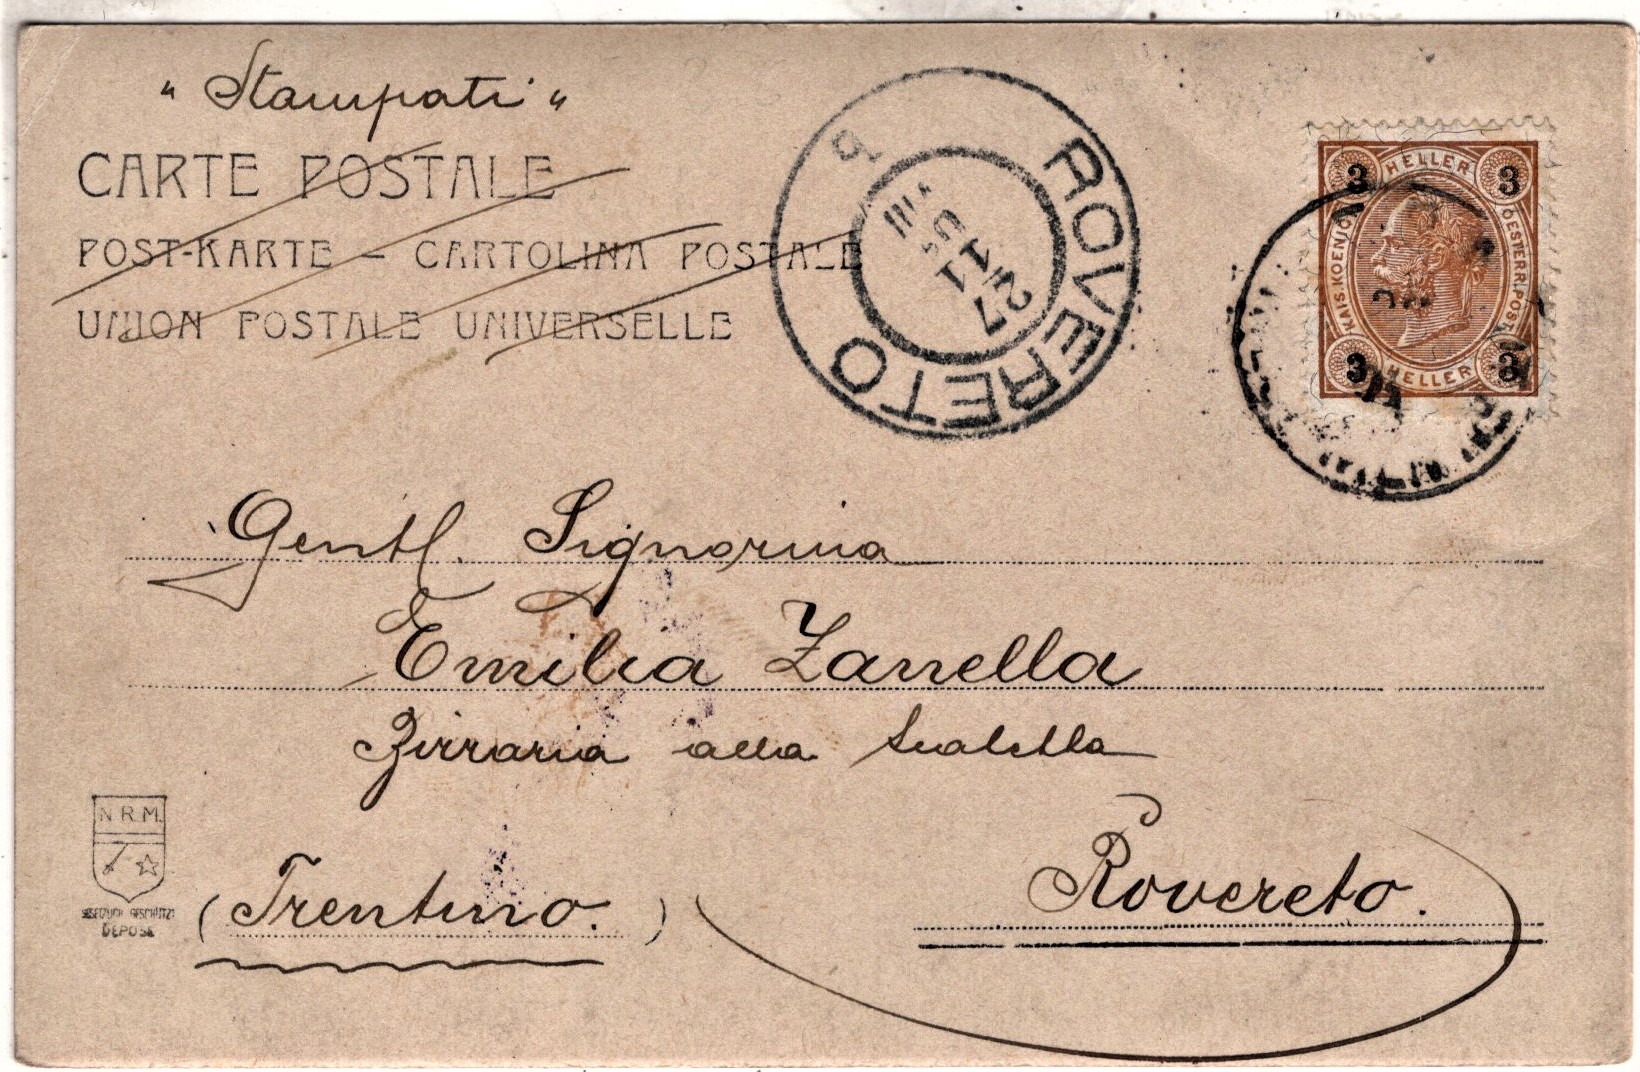 " Stampati "
CARTE POSTALE
POST-KARTE – CARTOLINA POSTALE
UNION POSTALE UNIVERSELLE
ROVERETO
27
11
VIII
b
3 HELLER 3
KAIS. KOENIGL. OESTERR. POST
3 HELLER 3
Gentl. Signorina
Emilia Zanella
Birraria alla Scaletta
Rovereto.
(Trentino.)
N.R.M.
GESETZLICH GESCHÜTZT
DEPOSE